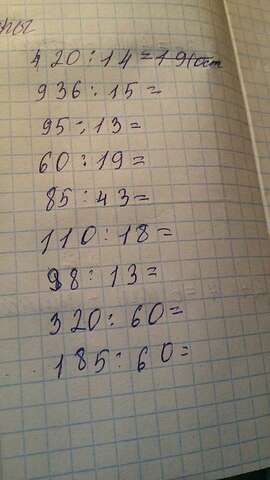 ры
420:14=19(ост
936:15=
95:13=
60:19=
85:43=
110:18=
98:13=
320:60=
185:60=